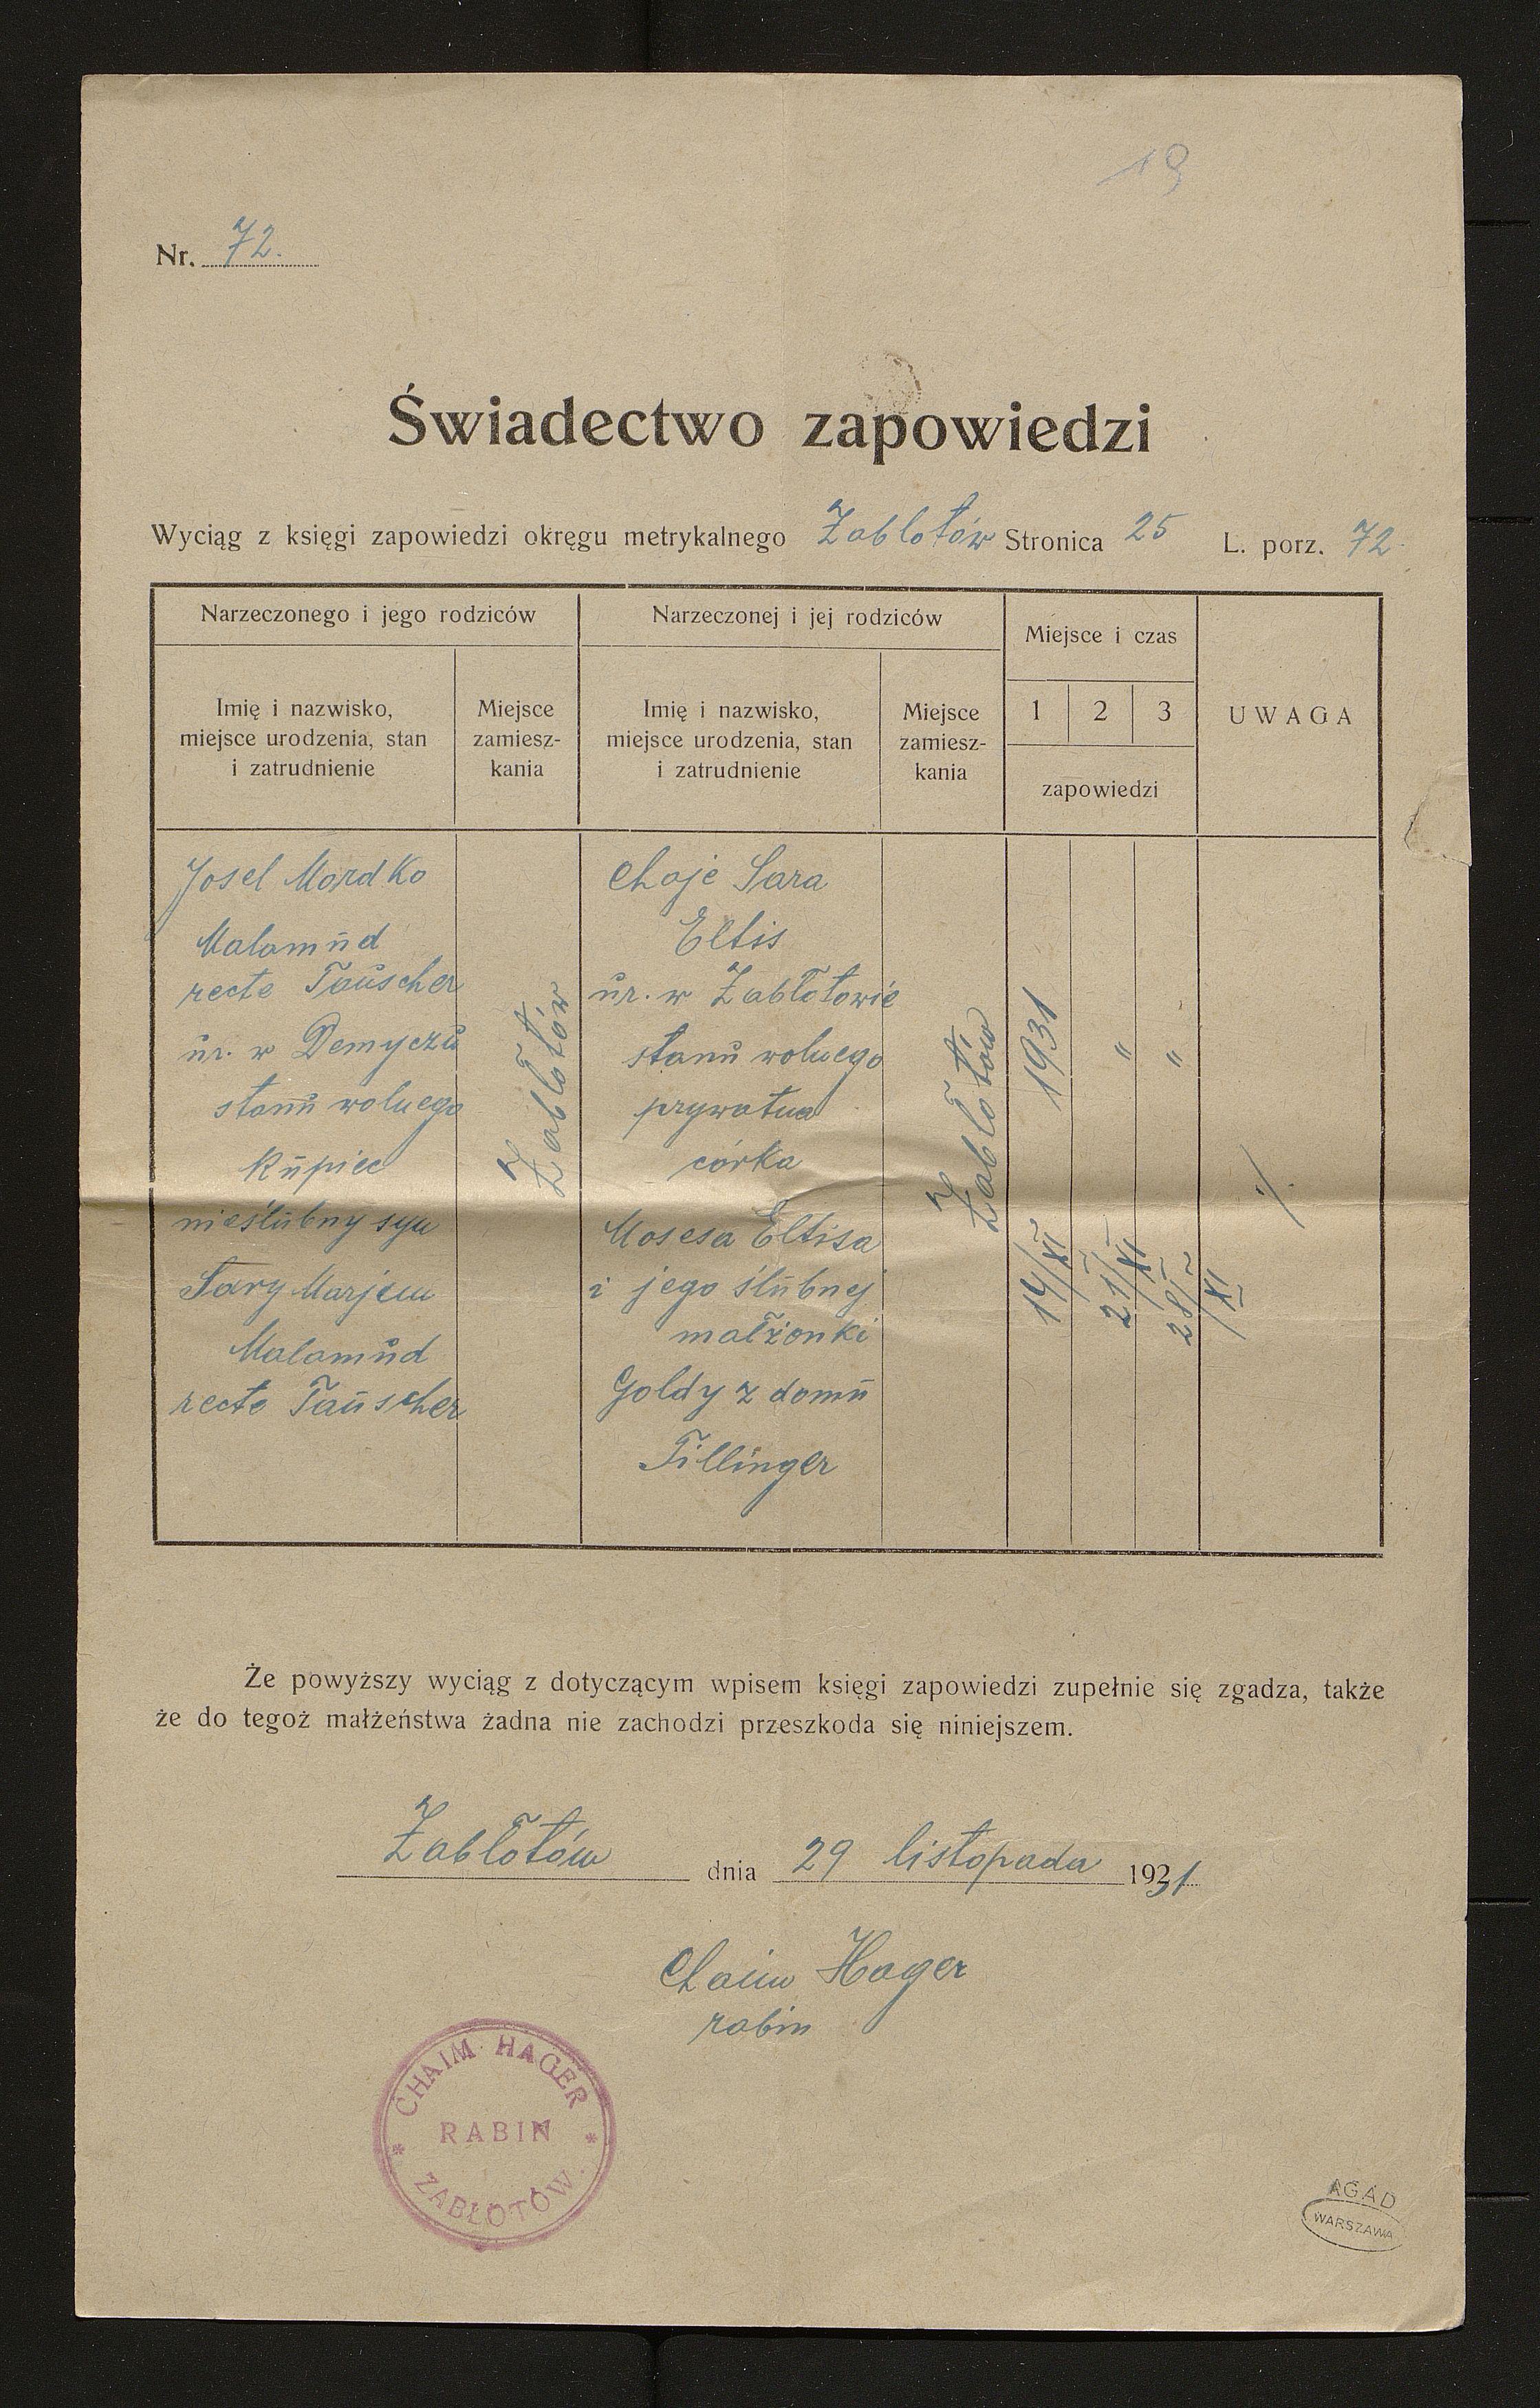 19
Nr. 72.
Świadectwo zapowiedzi
Wyciąg z księgi zapowiedzi okręgu metrykalnego Zabłotów Stronica 25 L. porz. 72.
Narzeczonego i jego rodziców
Narzeczonej i jej rodziców
Miejsce i czas
UWAGA
Imię i nazwisko,
miejsce urodzenia, stan
i zatrudnienie
Miejsce
zamiesz-
kania
Imię i nazwisko,
miejsce urodzenia, stan
i zatrudnienie
Miejsce
zamiesz-
kania
1 2 3
zapowiedzi
Josel Mordko
Malamud
recte Tauscher
ur. w Demyczu
stanu wolnego
kupiec
nieślubny syn
Sary Marjem
Malamud
recte Tauscher
Zabłotów
Chaje Sara
Eltis
ur. w Zabłotowie
stanu wolnego
prywatna
córka
Mosesa Eltisa
i jego ślubnej
małżonki
Goldy z domu
Tillinger
Zabłotów
14/XI 1931
21/XI "
28/XI "
./.
Że powyższy wyciąg z dotyczącym wpisem księgi zapowiedzi zupełnie się zgadza, także
że do tegoż małżeństwa żadna nie zachodzi przeszkoda się niniejszem.
Zabłotów dnia 29 listopada 1931
Chaim Hager
rabin
CHAIM HAGER
RABIN
* *
ZABŁOTÓW
AGAD
WARSZAWA